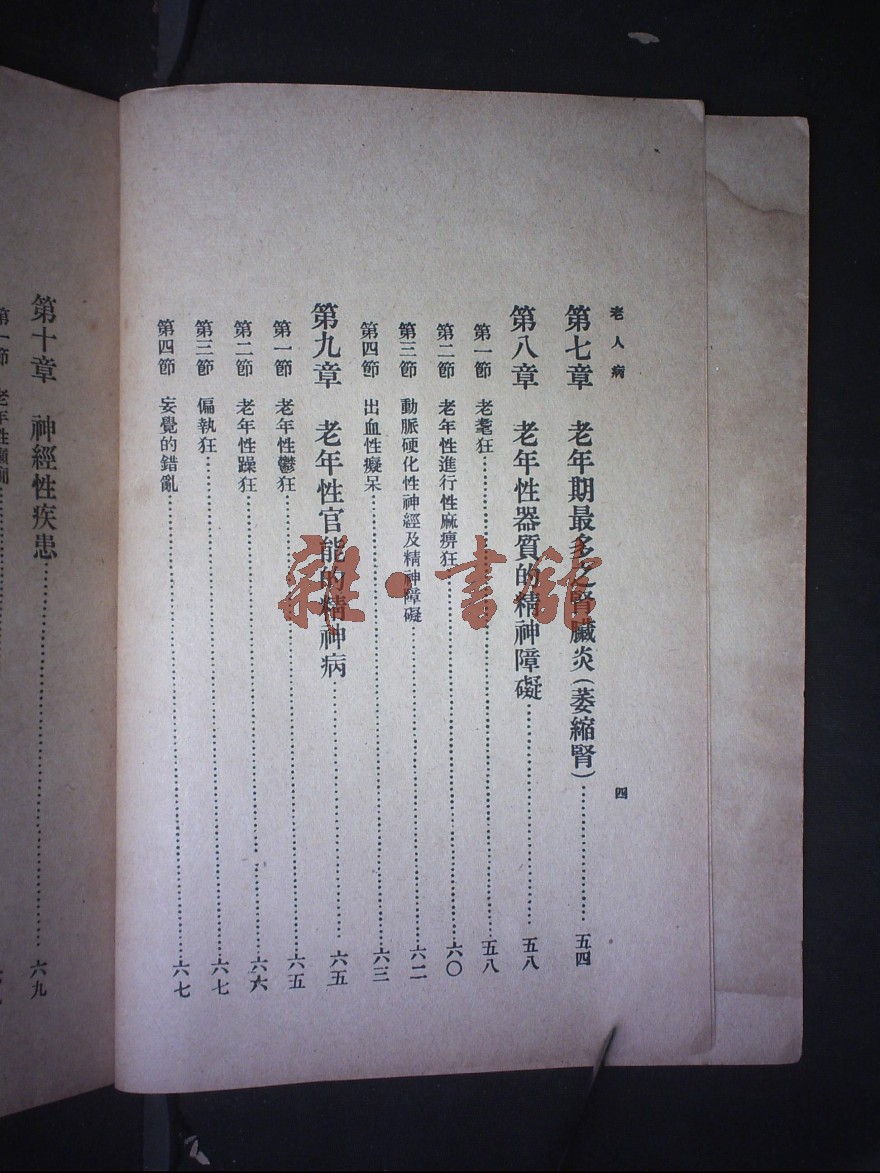 老人病 四
第七章 老年期最多之腎臟炎(萎縮腎)……五四
第八章 老年性器質的精神障礙……五八
第一節 老耄狂……五八
第二節 老年性進行性麻痹狂……六〇
第三節 動脈硬化性神經及精神障礙……六二
第四節 出血性癡呆……六三
第九章 老年性官能的精神病……六五
第一節 老年性鬱狂……六五
第二節 老年性躁狂……六六
第三節 偏執狂……六七
第四節 妄覺的錯亂……六七
第十章 神經性疾患……六九
第一節 老年性癲癇
雜·書館